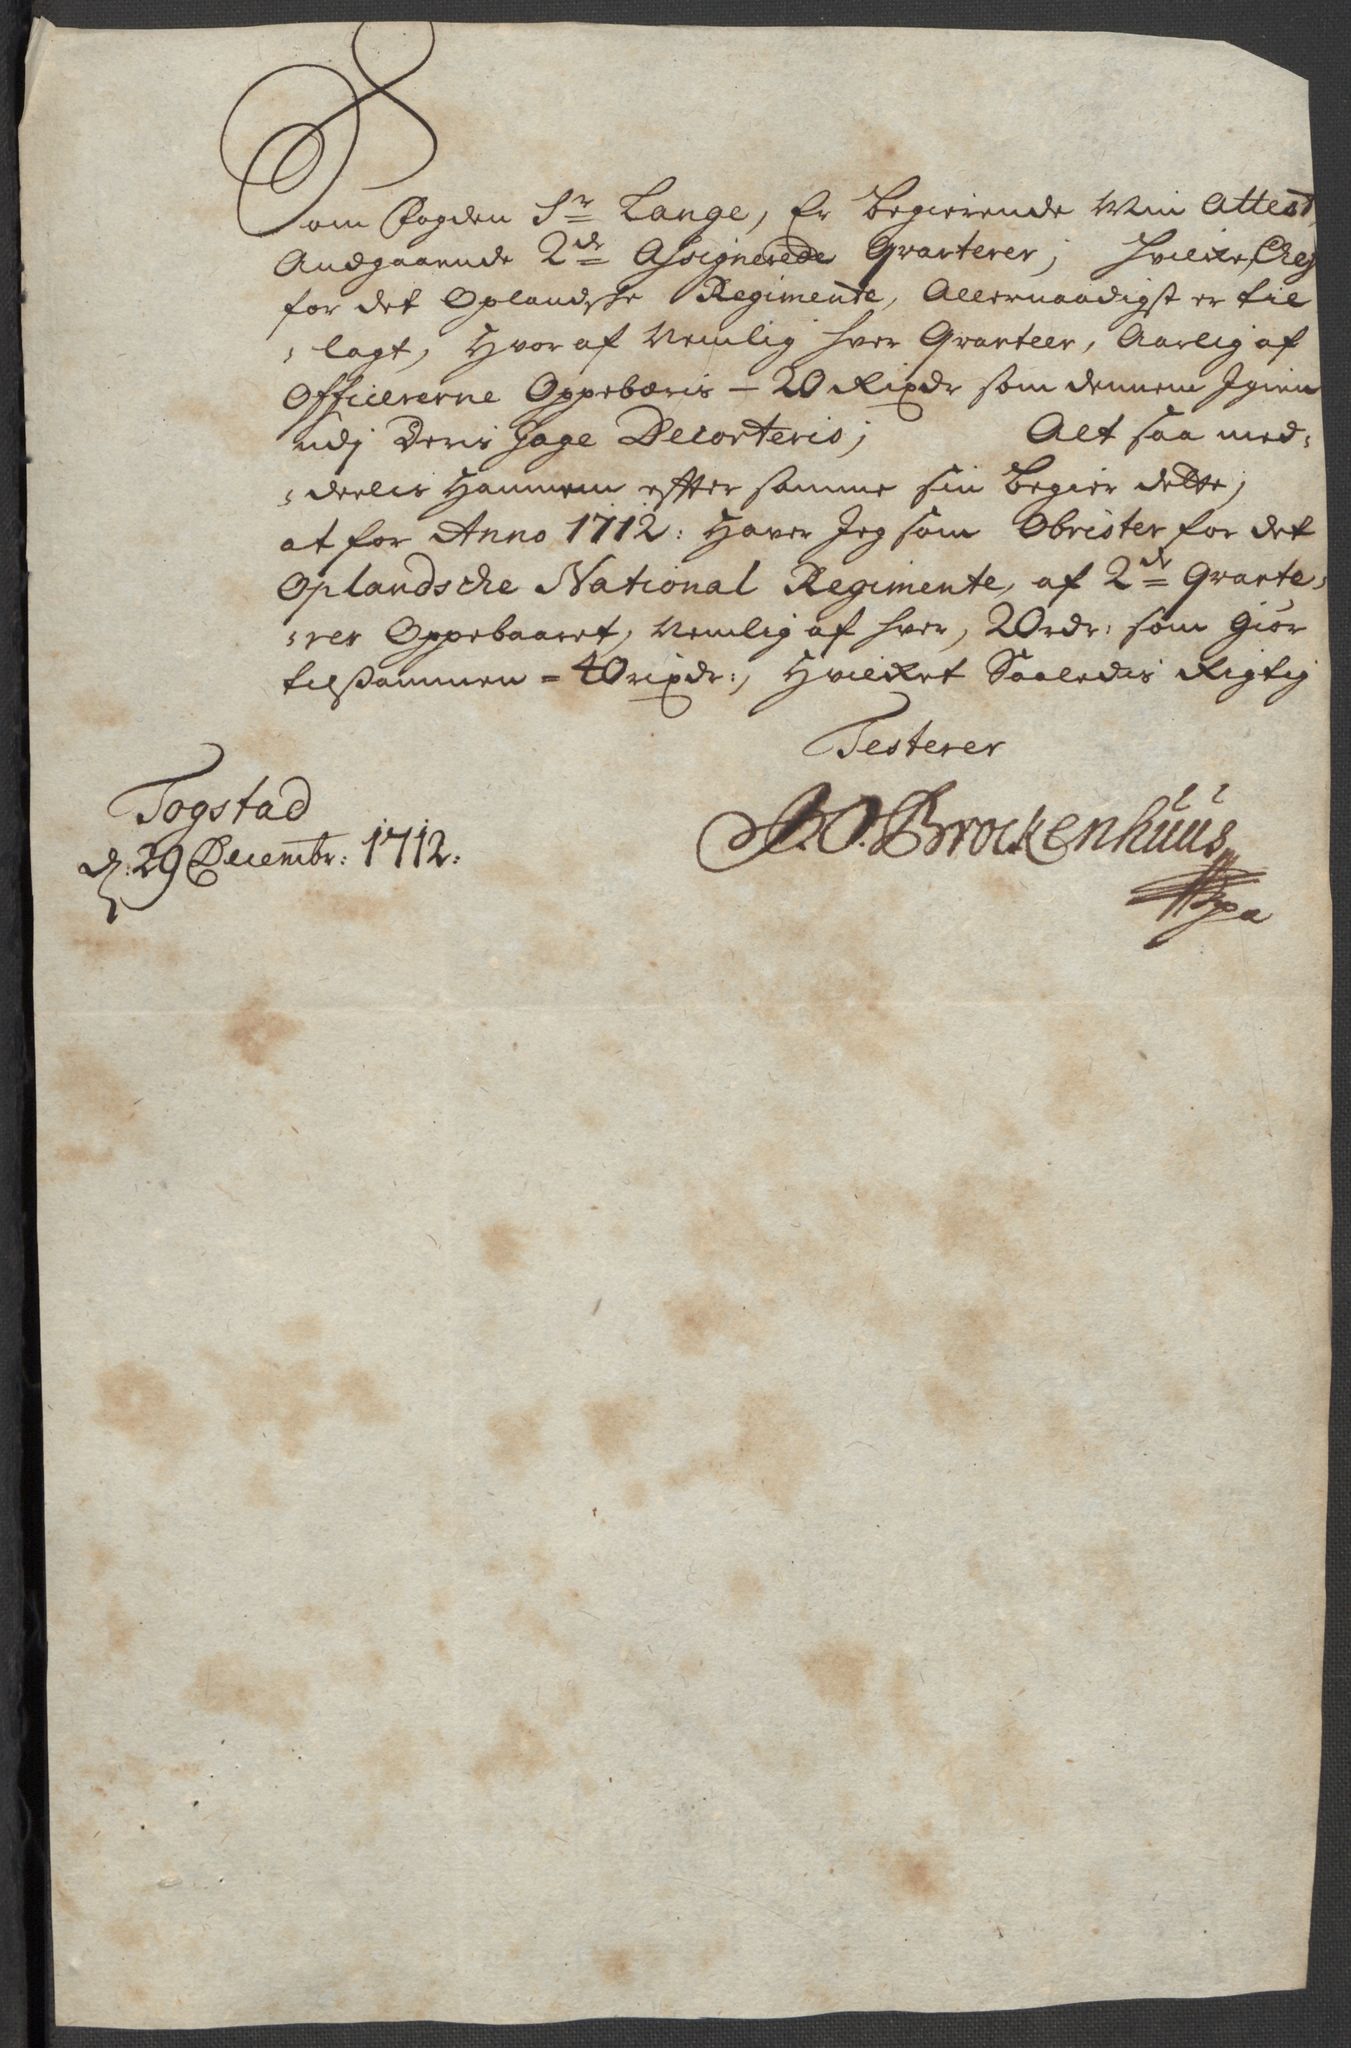 Som Fogden Sr Lange, Er begierende Min Attest,
Andgaaende 2de Assignerede Qvarterer; hvilke,
for det Oplandske Regimente, Allernaadigst er til
= lagt, Hvor af Nemlig hver Qvarteer, Aarlig af
Officererne Oppebæris – 20 Rixdr som dennem Igien
udj Deris Gage Decorteris; Alt saa med=
=deelis Hannem effter samme sin Begier dette,
at for Anno 1712: Haver Jeg som Obrister for det
Oplandsche National Regimente, af 2de Qvarte=
=rer Oppebaaret, Nemlig af hver, 20 rdr: som Giør
tilsammen = 40 rixdr:, Hvilket Saaledis Rigtig
Testerer
Togstad
d: 29 Decembr: 1712:
Brockenhuus